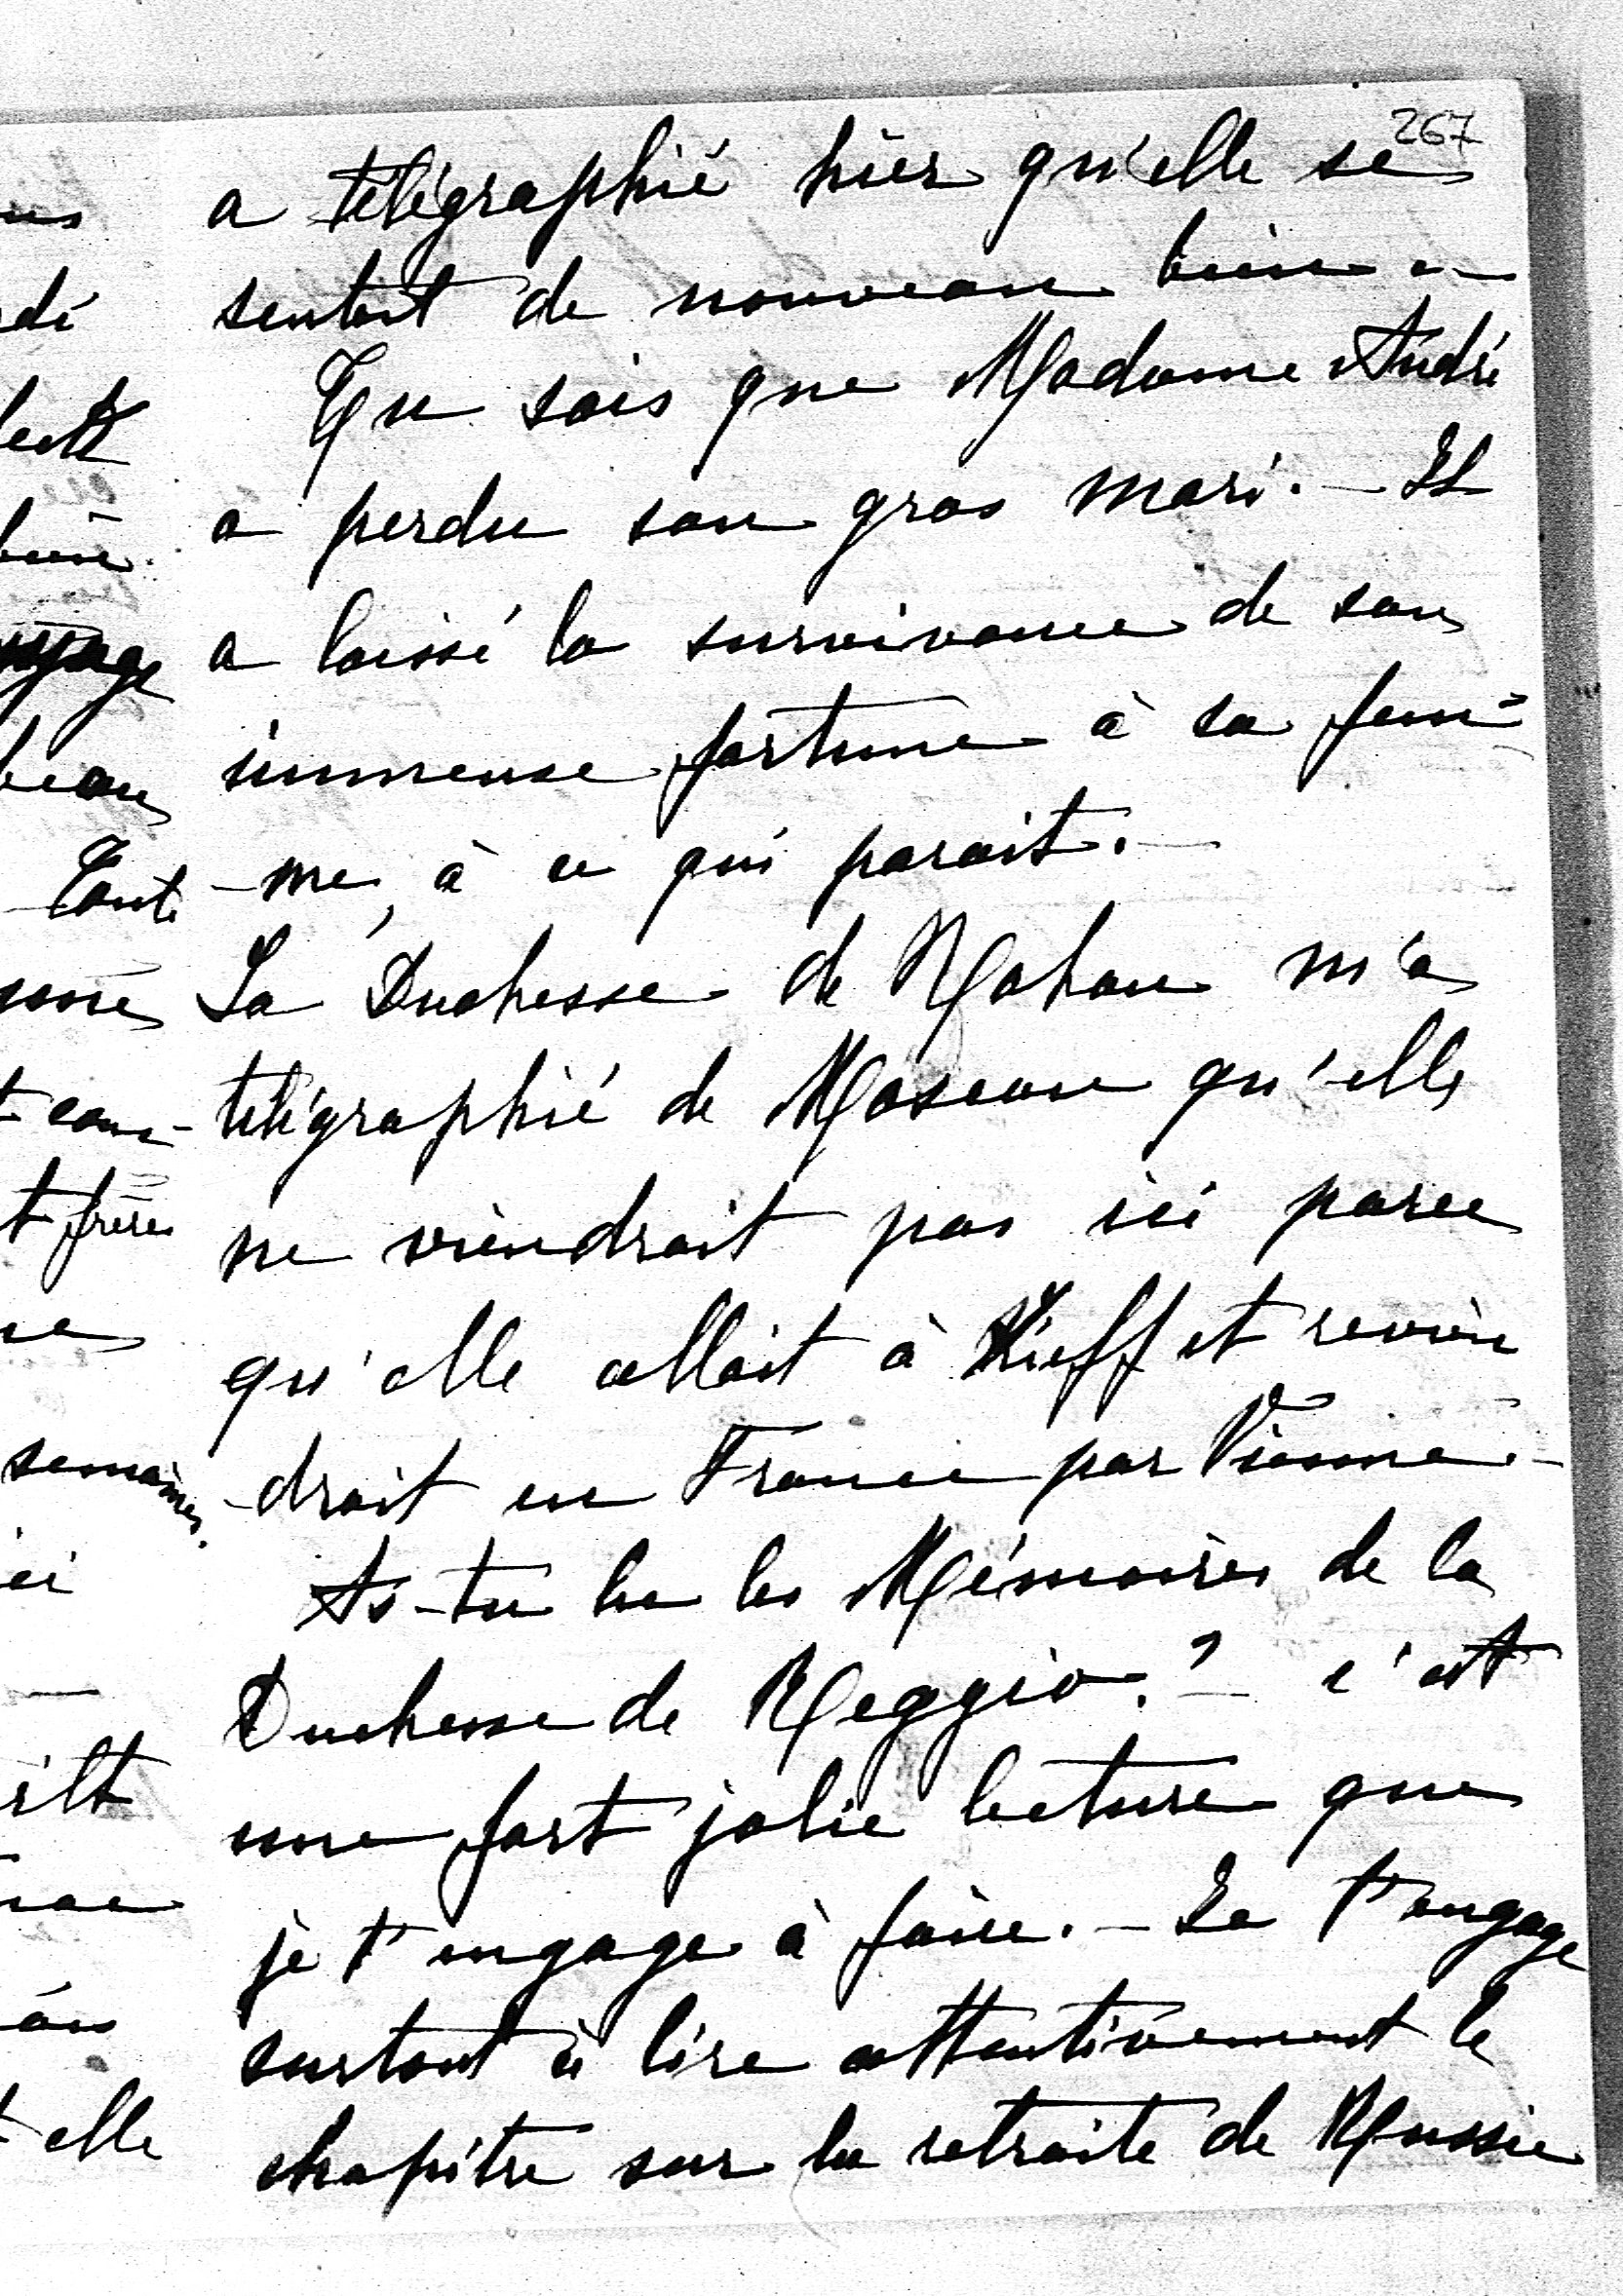 267
a télégraphié hier qu'elle se
sentait de nouveau bien.—
Tu sais que Madame André
a perdu son gros mari.— Il
a laissé la survivance de son
immense fortune à sa fem=
-me, à ce qui parait.—
La Duchesse de Rohan m'a
télégraphié de Moscou qu'elle
ne viendrait pas ici parce
qu'elle allait à Kieff et revien
-drait en France par Vienne.—
As-tu lu les Mémoires de la
Duchesse de Reggio?— c'est
une fort jolie lecture que
je t'engage à faire.— Je t'engage
surtout à lire attentivement le
chapitre sur la retraite de Russie
us
dé
beau
Tante
t com-
t frères
semaines.
ici
t elle